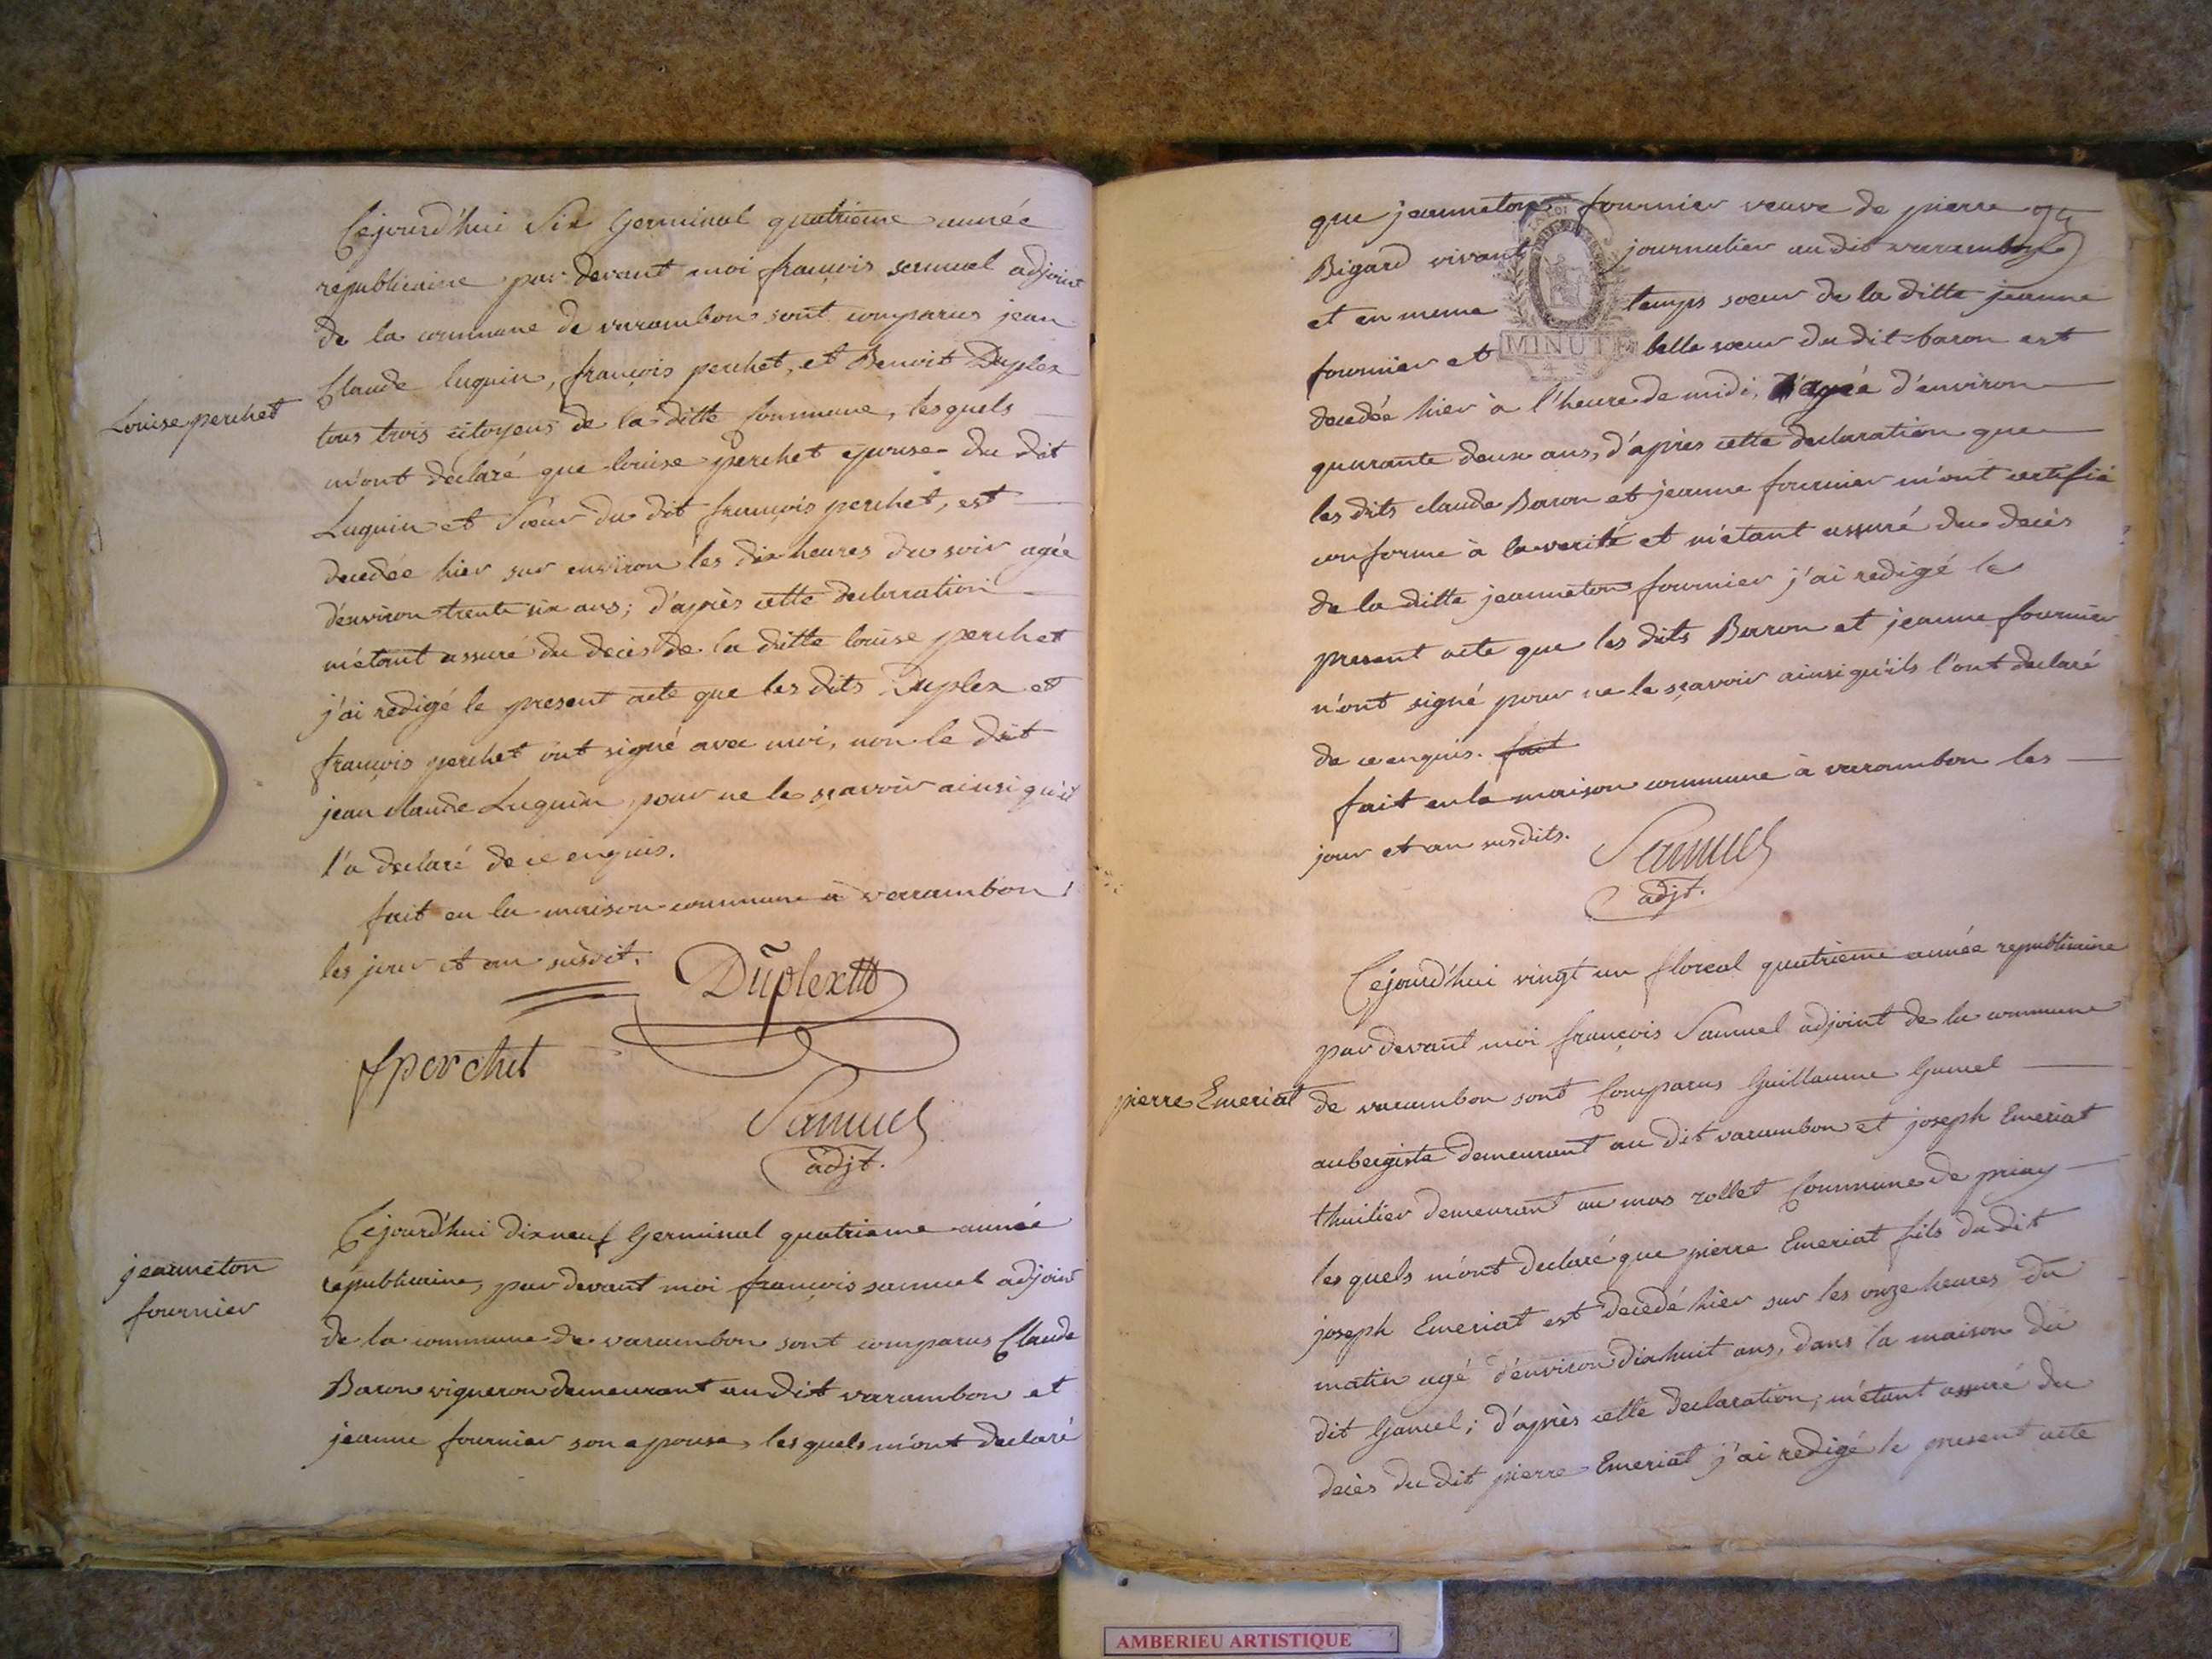 Cejourd'hui Six Germinal quatrieme année
republicaine par devant moi françois samuel adjoint
de la commune de varambon sont comparus jean
Claude luguin, françois perchet, et Benoit Duplex
Louise perchet
tous trois citoyens de la ditte Commune, lesquels
m'ont declaré que louise perchet epouse du dit
Luguin et Sœur du dit françois perchet, est
decedée hier sur environ les dix heures du soir agée
d'environ trente six ans; d'après cette declaration
m'étant assuré du decès de la ditte louise perchet
j'ai redigé le present acte que les dits Duplex et
françois perchet ont signé avec moi, non le dit
jean claude Luguin, pour ne le sçavoir ainsi qu'il
l'a declaré de ce enquis.
fait en la maison commune à varambon
les jour et an susdit.
Duplex
fperchet
Samuel
adjt.
jeanneton
fournier
Cejourd'hui dixneuf Germinal quatrieme année
republicaine, par devant moi françois samuel adjoint
de la commune de varambon sont comparus Claude
Baron vigneron demeurant au dit varambon et
jeanne fournier son epouse, les quels m'ont declaré
que jeanneton fournier veuve de pierre
Bigard vivant journalier au dit varambon
et en meme temps sœur de la ditte jeanne
fournier et belle sœur du dit baron est
LA LOI
MINUTE
decedée hier à l'heure de midi, agée d'environ
quarante deux ans, d'après cette declaration que
les dits claude Baron et jeanne fournier m'ont certifié
conforme à la verité et m'étant assuré du decès
de la ditte jeanneton fournier j'ai redigé le
present acte que les dits Baron et jeanne fournier
n'ont signé pour ne le sçavoir ainsi qu'ils l'ont declaré
de ce enquis. fait
fait en la maison commune à varambon les
jour et an susdits.
Samuel
adjt.
Cejourd'hui vingt un floreal quatrieme année republicaine
par devant moi françois Samuel adjoint de la commune
pierre Emeriat
de varambon sont Comparus Guillaume Gamel
aubergiste demeurant au dit varambon et joseph Emeriat
thuilier demeurant au mas rollet Commune de priay
les quels m'ont declaré que pierre Emeriat fils du dit
joseph Emeriat est decedé hier sur les onze heures du
matin agé d'environ dix huit ans, dans la maison du
dit Gamel; d'après cette declaration, m'étant assuré du
decès du dit pierre Emeriat j'ai redigé le present acte
AMBERIEU ARTISTIQUE